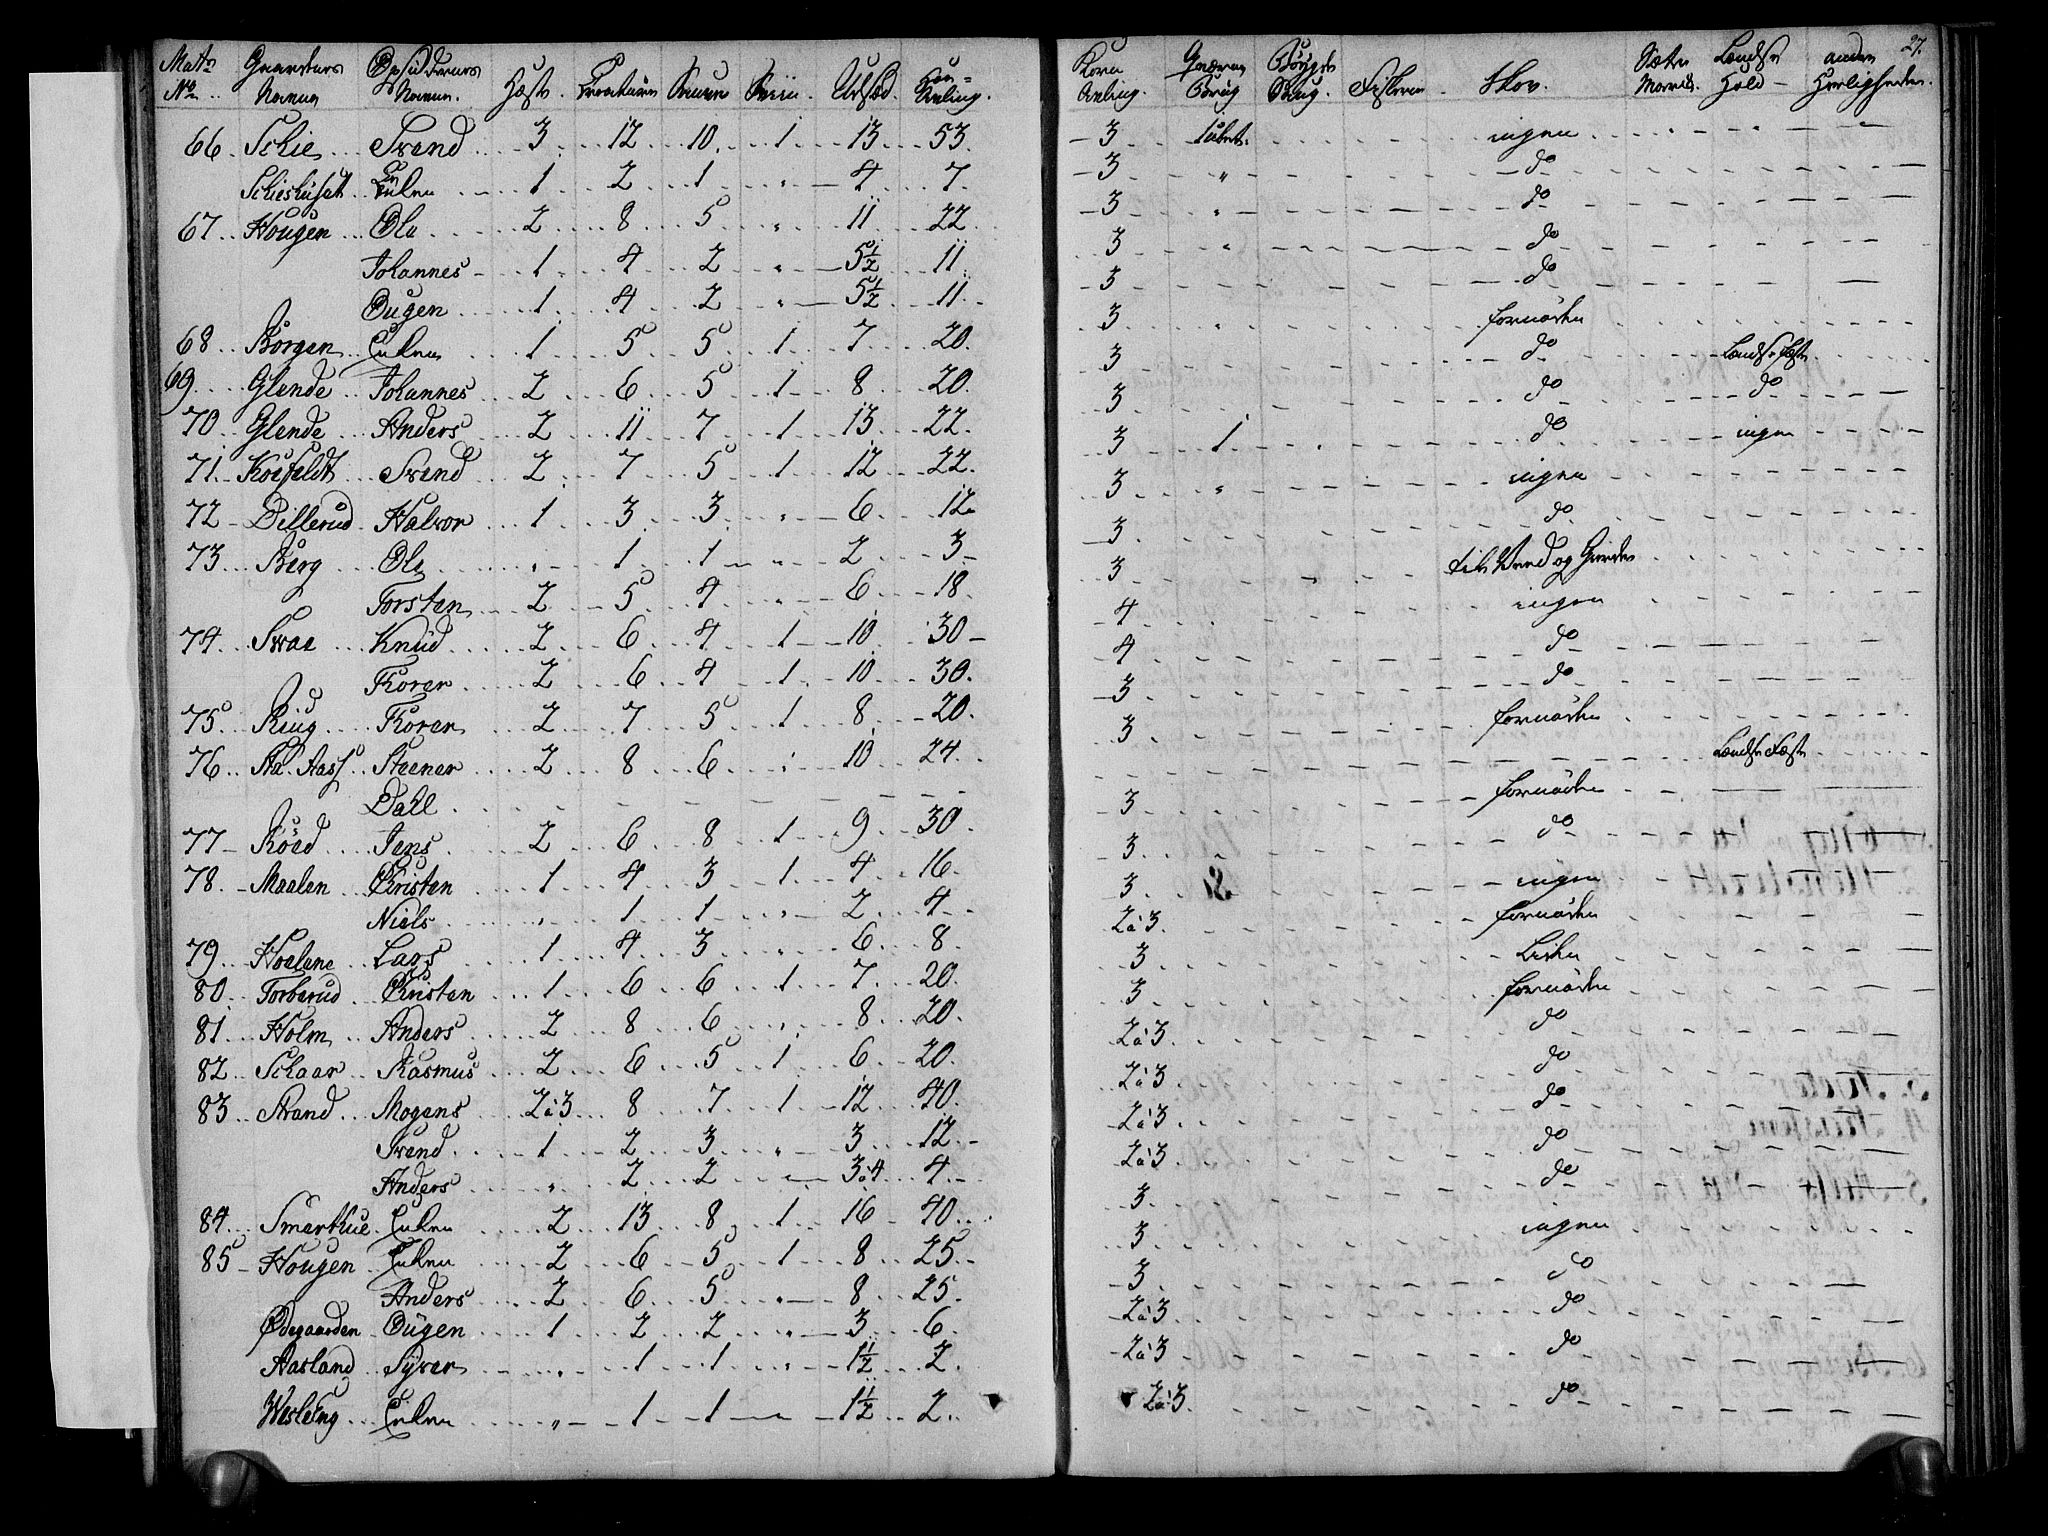 Matr No Gaardens Navne Opsiddernes Navne. Hæste Creaturer Souer Sviin Udsæd. Høe-Avling.
66. Schie Svend 3 12 10 1 13 53.
Schieshuset Enken 1 2 1 " 4 7.
67 Hougen Ole 2 8 5 " 11 22.
Johannes 1 4 2 " 5½ 11
Ougen 1 4 2 " 5½ 11
68 Borgen Enken 1 5 5 1 7 20.
69. Glende Johannes 2 6 5 1 8 20.
70 Glende Anders 2 11 7 1 13 22.
71. Kosfeldt Svend 2 7 5 1 12 22.
72 Dillerud Halvor 1 3 3 " 6 12
73 Berg Ole " 1 1 " 2 3
Torsten 2 5 4 " 6 18.
74 Svae Knud 2 6 4 1 10. 30
Thorer 2 6 4 1 10 30.
75 Ring Thoren 2 7 5 1 8 20.
76 Ad. Aass Steener 2 8 6 " 10 24
Dahl
77 Röed Jens 2 6 8 1 9 30.
78. Maalen Christen 1 4 3 1 4 16.
Niels " 1 1 " 2 4
79 Hoelene Lars 1 4 3 " 6 8.
80. Torberud Christen 1 6 6 1 7 20.
81. Holm Anders 2 8 6 " 8 20.
82 Schaar Rasmus 2 6 5 1 6 20.
83 Strand Mogens 2 à 3 8 7 1 12 40.
Svend 1 2 3 " 3 12
Anders " 2 2 " 3 à 4 4
84 Smerthue Enken 2 13 8 1 16 40.
85 Hougen Enken 2 6 5 1 8 25.
Anders 2 6 5 " 8 25.
Ødegaarden Ougen 1 2 2 " 3 6.
Aasland Syver " 1 1 " 1½ 2.
Wesleng Enken " 1 1 " 1½ 2.
27.
Korn Avling. Qværne Brug Bøygde Brug. Fiskerie Skov. Sætre Havn Lændse Hold andre Herligheder.
3 1 ingen
3 " do
3 " do
3 " do
3 do
3 " fornöden
3 do Lændse Fæste
3 do do
3 1 do ingen
3 " ingen
3 do
3 til Brend og Gierder
4 ingen
4 do
3 do
3 fornöden
Lændse Fæste
3 fornöden
3 do
3 ingen
2 à 3. fornöden
3 Liden
3 fornöden
2 à 3 do
2 à 3 do
2 à 3 do
2 à 3 do
3 do
3 ingen
3 do
2 à 3 do
2 à 3 do
2 à 3 do